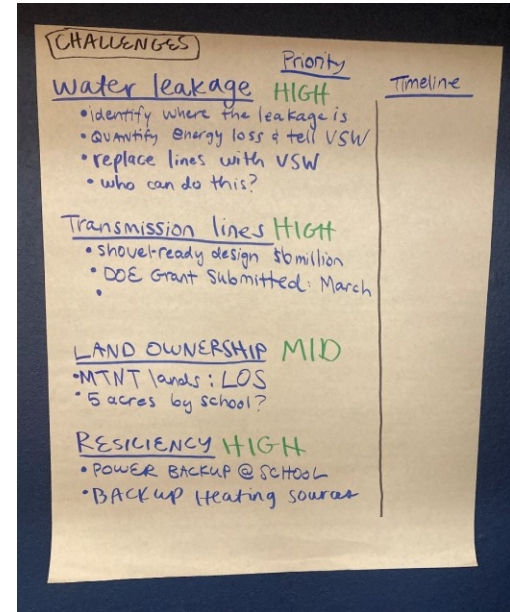 CHALLENGES
Priority
Timeline
Water leakage HIGH
• identify where the leakage is
• QUANTIFY energy loss & tell VSW
• replace lines with VSW
• who can do this?
Transmission lines HIGH
• shovel-ready design $6 million
• DOE Grant Submitted: March
•
LAND OWNERSHIP MID
• MTNT lands: LOS
• 5 acres by school?
RESILIENCY HIGH
• POWER BACKUP @ SCHOOL
• BACKUP Heating sources